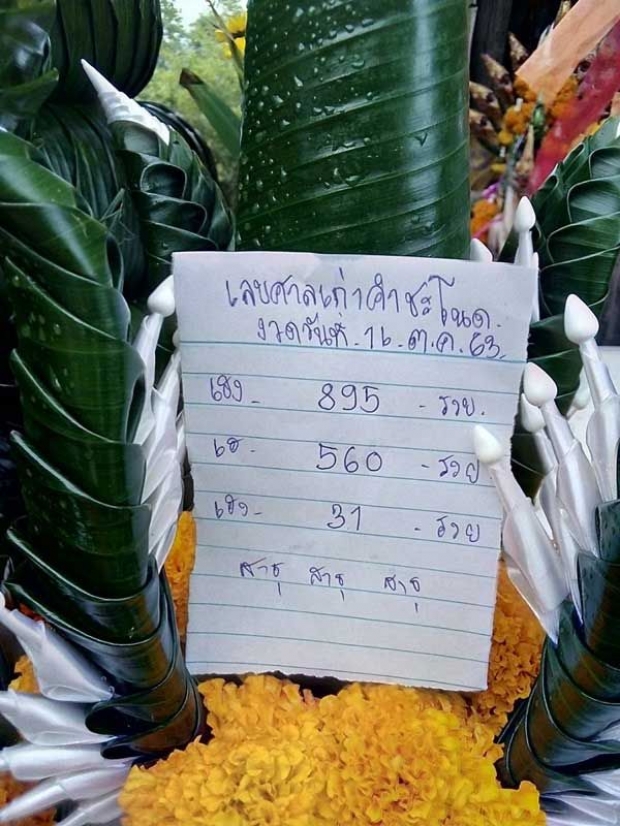 เลขศาลเก่าคำชะโนด.
งวดวันที่. 16. ต.ค. 63.
เฮง - 895 - รวย.
เฮ - 560 - รวย
เฮง - 31 - รวย
สาธุ สาธุ สาธุ